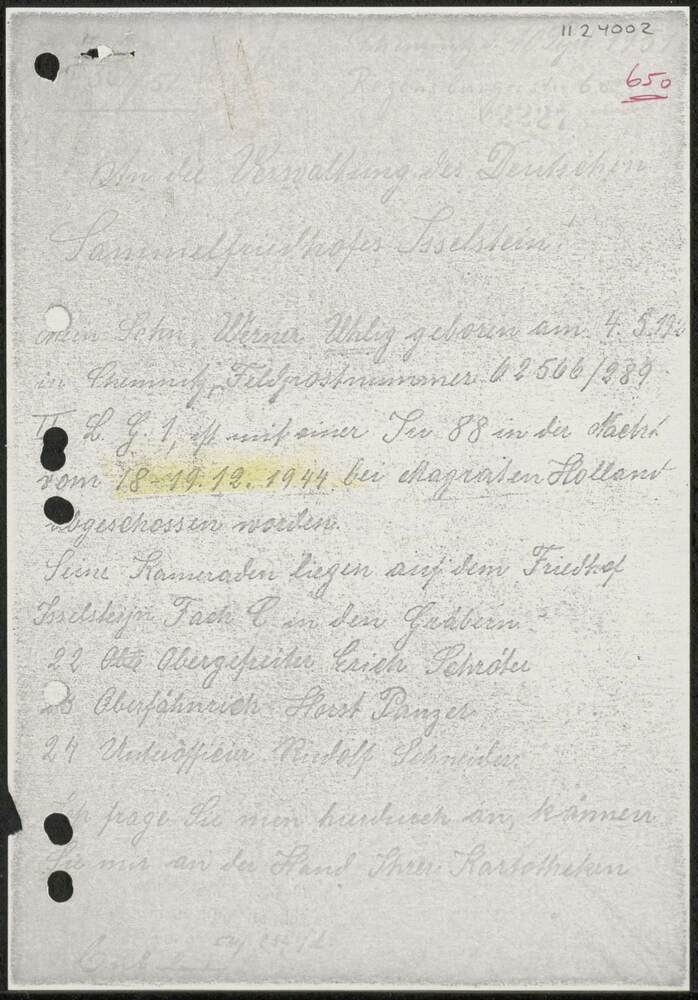 1124002
650
An die Verwaltung des Deutschen
Sammelfriedhofes Isselstein!
mein Sohn, Werner Uhlig geboren am 4. 5. 192
in Chemnitz, Feldpostnummer 62566/289
II L. G. 1, ist mit einer Ju 88 in der Nacht
vom 18-19.12.1944 bei Magraten Holland
abgeschossen worden.
Seine Kameraden liegen auf dem Friedhof
Isselsteyn Fach C in den Gräbern
22 Obergefreiter Erich Schröter
Oberfähnrich Horst Panzer
24 Unterofficier Rudolf Schneider
ich frage Sie nun hierdurch an, können
Sie mir an der Hand Ihrer Kartotheken